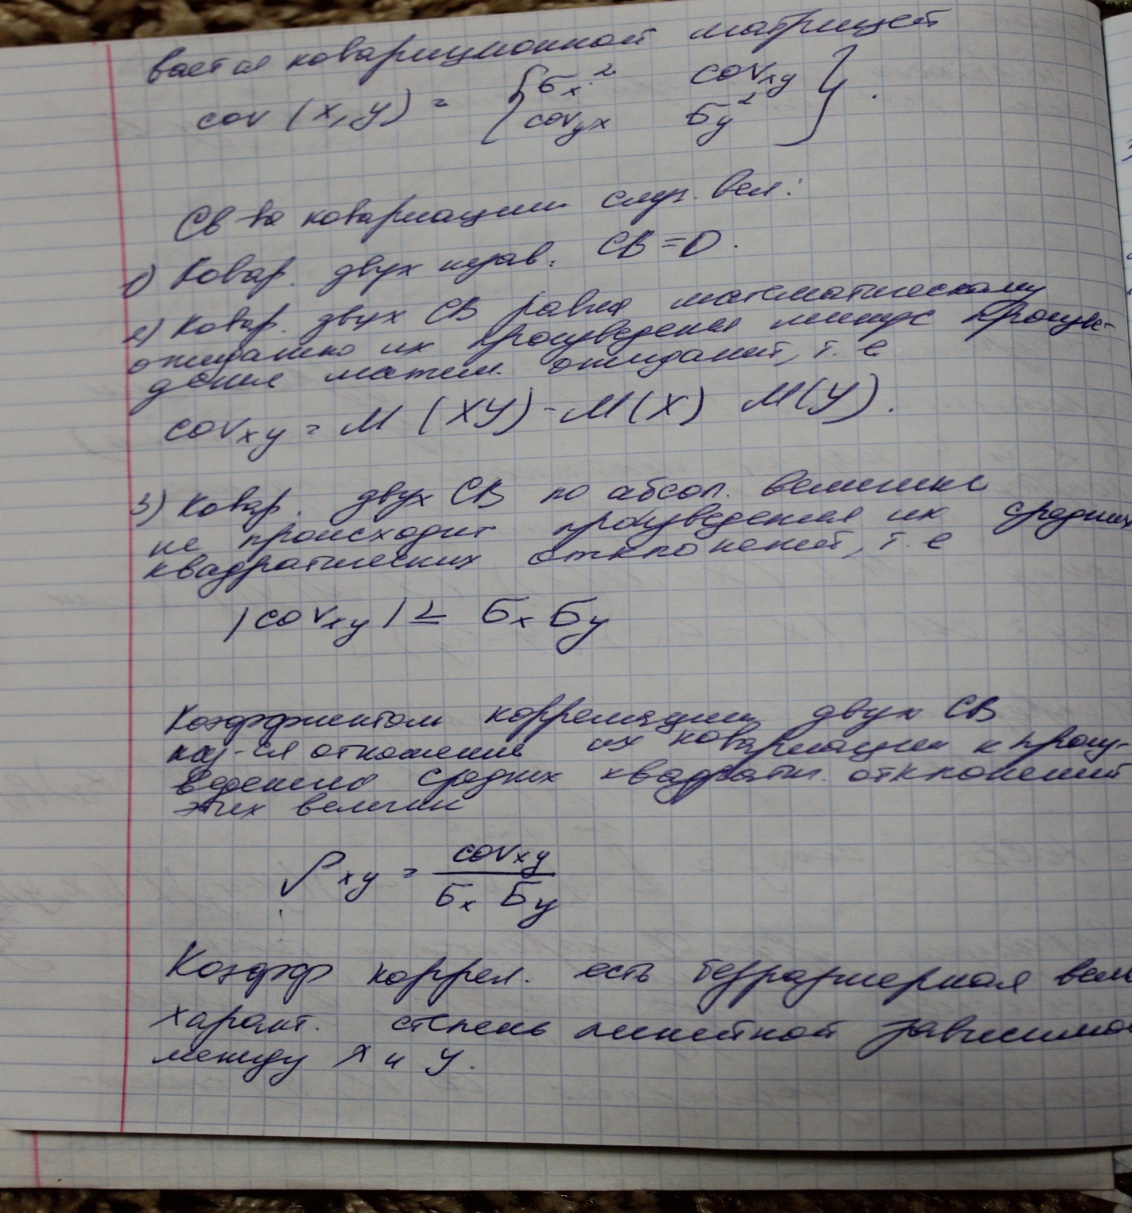 вается ковариционной матрицей
cov (x, y) = {σx² covxy
covyx σy²}.
Св-ва ковариации случ. вел:
1) Ковар. двух незав. СВ = 0.
2) Ковар. двух СВ равна математическому
ожиданию их произведения минус произве-
дения матем. ожиданий, т. е
covxy = M (XY) - M(X) M(Y).
3) Ковар. двух СВ по абсол. величине
не происходит произведения их средних
квадратических отклонений, т. е
|covxy| ≤ σx σy
Коэффициентом корреляции двух СВ
наз-ся отношение их ковариации к произ-
ведению средних квадратич. отклонений
этих величин
ρxy = covxy / σx σy
Коэфф коррел. есть безразмерная вел
характ. степень линейной зависимо
между X и Y.